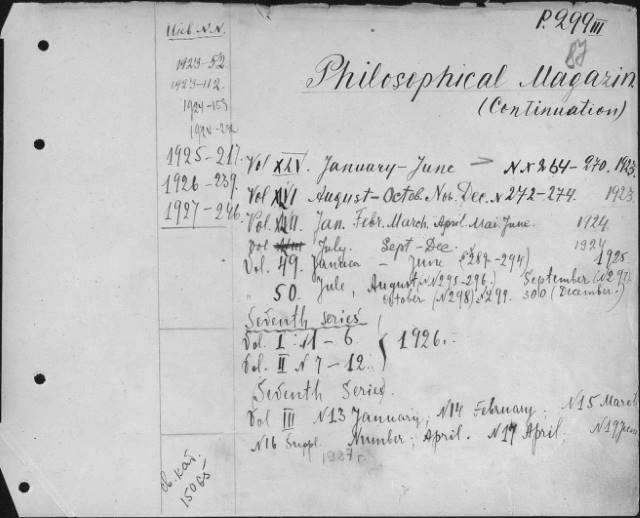 Инв. N.N.
1923-52
1923-112
1924-153
1925-217.
1926-239.
1927-246.
P. 299 III
87
Philosophical Magazin
(Continuation)
Vol XLV. January-June N.N 264-270. 1923.
Vol XLVI August-Octob. Nov. Dec. N 272-274. 1923
Vol. XLVII. Jan. Febr. March. April. Mai. June. 1924.
Vol July. Sept-Dec. 1924
Vol. 49. - June (N 289-294) 1925
" 50. Jule, August, (NN 295-296.) September (N 297)
october (N 298) N 299. 300 (December.)
Seventh series
Vol. I: N1-6 } 1926.-
Vol. II N 7-12.
Seventh Series.
Vol III N13 January; N14 February; N15 March
N16 Suppl. Number; April. N17 April; N19 June
1927 г.
св. кат.
15065